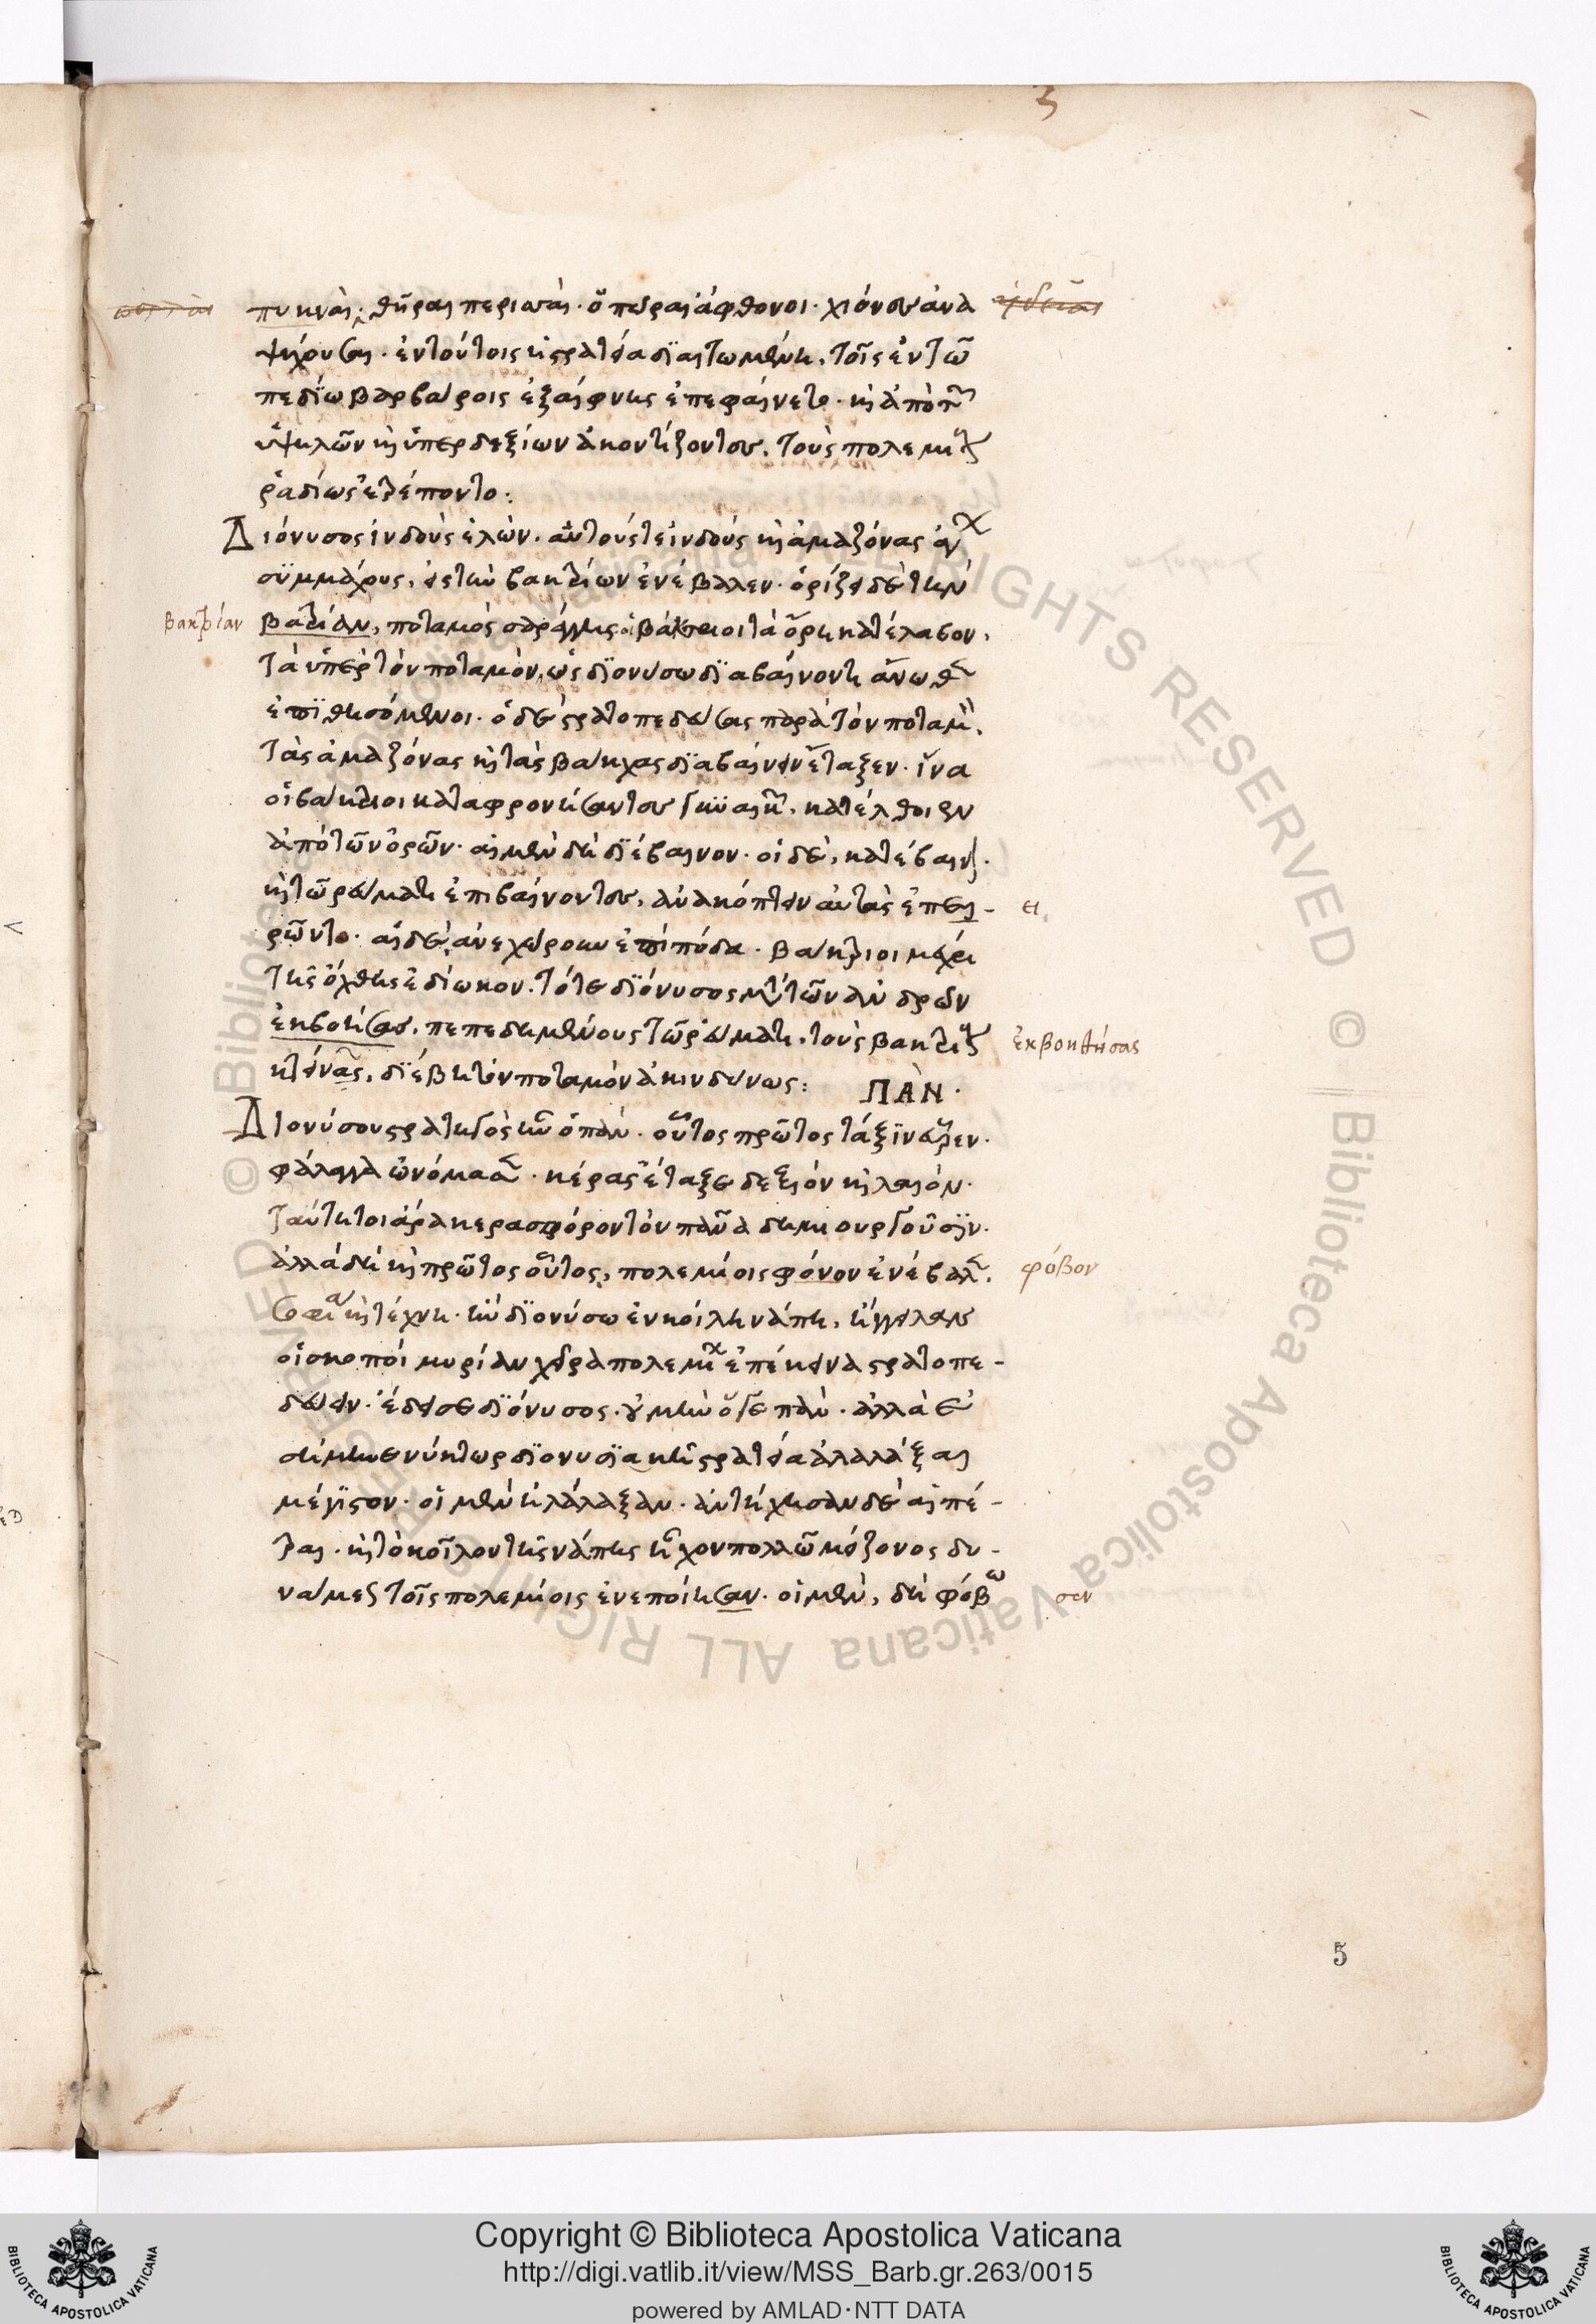 πυκναὶ· θῆραι περισσαί· ὀπώραι ἄφθονοι· χιόνες ἀνα
ψύχουσαι· ἐν τούτοις ἡ στρατιὰ διαιτωμένη, τοῖς ἐν τῶ
πεδίω βαρβάροις ἐξαίφνης ἐπεφαίνετο· καὶ ἀπὸ τῶν
ὑψηλῶν καὶ ὑπερδεξίων ἀκοντίζοντες, τοὺς πολεμίους
ῥαδίως ἐτρέποντο:
Διόνυσος ἰνδοὺς ἑλὼν· αὐτούς τε ἰνδοὺς καὶ ἀμαζόνας ἄγων
συμμάχους, εἰς τὴν βακτρίων ἐνέβαλεν· ὁρίζει δὲ τὴν
βακτρίαν
βατρίαν, ποταμὸς σαράγγης· οἱ βάκτριοι τὰ ὄρη κατέλαβον,
τὰ ὑπὲρ τὸν ποταμὸν, ὡς διονύσω διαβαίνοντι ἄνωθεν
ἐπιθησόμενοι· ὁ δὲ στρατοπεδεύσας παρὰ τὸν ποταμὸν,
τὰς ἀμαζόνας καὶ τὰς βάκχας διαβαίνειν ἔταξεν· ἵνα
οἱ βάκτριοι καταφρονήσαντες γυναικῶν, κατέλθοιεν
ἀπὸ τῶν ὀρῶν· αἱ μὲν δὴ διέβαινον· οἱ δὲ, κατέβαινον·
καὶ τῶ ῥεύματι ἐπιβαίνοντες, ἀνακόπτειν αὐτὰς ἐπαι-
ει
ρῶντο· αἱ δὲ, ἀνεχώρουν ἐπὶ πόδα· βάκτριοι μέχρι
τῆς ὄχθης ἐδίωκον. τότε διόνυσος μετὰ τῶν ἀνδρῶν
ἐκβοήσας, πεπεδημένους τῶ ῥεύματι, τοὺς βακτρίους
ἐκβοηθήσας
κτείνας, διέβη τὸν ποταμὸν ἀκινδύνως:
ΠΑΝ·
Διονύσου στρατηγὸς ἦν ὁ πάν· οὗτος πρῶτος τάξιν εὗρεν·
φάλαγγα ὠνόμασε· κέρας ἔταξε δεξιὸν καὶ λαιόν·
ταύτη τοι ἄρα κερασφόρον τὸν πᾶνα δημιουργοῦσιν·
ἀλλὰ δὴ καὶ πρῶτος οὗτος, πολεμίοις φόνον ἐνέβαλεν,
φόβον
σοφία καὶ τέχνη· ἦν διονύσω ἐν κοίλη νάπη, ἤγγειλαν
οἱ σκοποὶ μυρίαν χεῖρα πολεμίων ἐπέκεινα στρατοπε-
δεύειν· ἔδεισε διόνυσος· οὐ μὴν ὅ γε πάν· ἀλλὰ ἐ
σήμηνε νύκτωρ διονυσιακῆ στρατιᾶ ἀλαλάξαι
μέγιστον· οἱ μὲν ἠλάλαξαν· ἀντήχησαν δὲ αἱ πέ-
τραι· καὶ τὸ κοῖλον τῆς νάπης ἦχον πολλῶ μείζονος δυ-
νάμεως τοῖς πολεμίοις ἐνεποίησαν· οἱ μὲν, δὴ φόβω
σεν
5
Copyright © Biblioteca Apostolica Vaticana
http://digi.vatlib.it/view/MSS_Barb.gr.263/0015
powered by AMLAD·NTT DATA
BIBLIOTECA APOSTOLICA VATICANA
BIBLIOTECA APOSTOLICA VATICANA
© Biblioteca Apostolica Vaticana ALL RIGHTS RESERVED
© Biblioteca Apostolica Vaticana ALL RIGHTS RESERVED